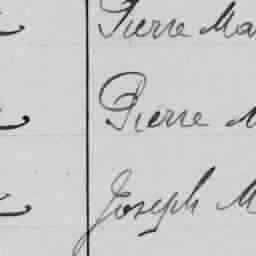 Pierre Ma
Pierre M
Joseph M